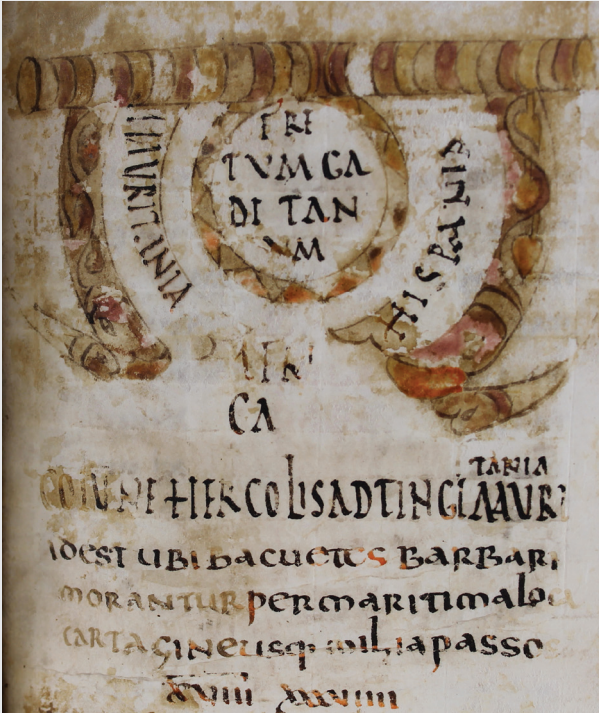 FRE
TVM GA
DI TAN
VM
MAURITANIA
HISPANIA
AFRI
CA
TANIA
COLUNE HERCOLIS AD TINGI MAURI
idest ubi bacuetes barbari
morantur per maritima loca
cartagine usq milia passo